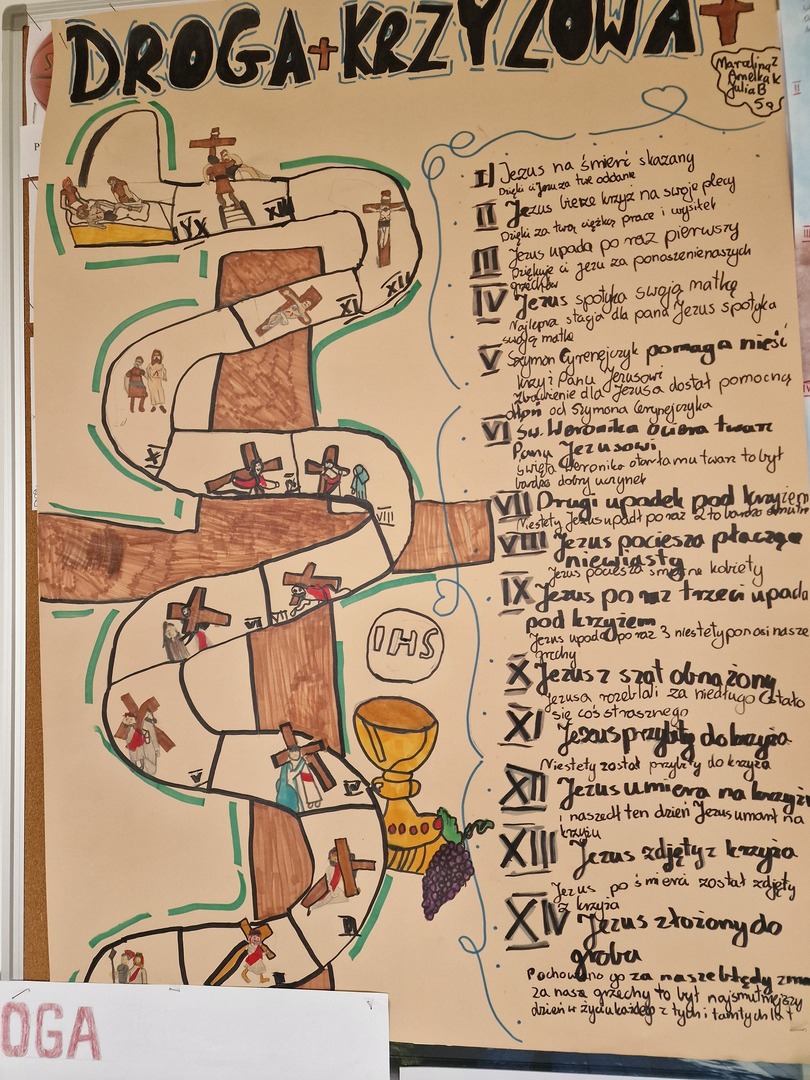 DROGA + KRZYŻOWA +
Maralina Z
Amelka K
Julia B
5a
I) Jezus na śmierć skazany
Dzięki ci Jezu za twe oddanie
II Jezus bierze krzyż na swoje plecy
Dzięki za twą ciężką prace i wysiłek
III Jezus upada po raz pierwszy
Dziękuje ci Jezu za ponoszenie naszych
grzechów
IV Jezus spotyka swoją matkę
Najlepsza stacja dla pana Jezus spotyka
swoją matkę
V Szymon Cyrenejczyk pomaga nieść
krzyż Panu Jezusowi
dla Jezusa dostał pomocną
dłoń od Szymona Cyrenejczyka
VI św. Weronika ociera twarz
Panu Jezusowi
święta Weronika otarła mu twarz to był
bardzo dobry uczynek
VII Drugi upadek pod krzyżem
Niestety Jezus upadł po raz 2 to bardzo smutne
VIII Jezus pociesza płaczące
niewiasty
Jezus pociesza smutne kobiety
IX Jezus po raz trzeci upada
pod krzyżem
Jezus upada po raz 3 niestety ponosi nasze
grzechy
X Jezus z szat obnażony
Jezusa rozebrali za niedługo
się coś strasznego
XI Jezus przybity do krzyża
Niestety został przybity do krzyża
XII Jezus umiera na krzyżu
i naszedł ten dzień Jezus umarł na
krzyżu
XIII Jezus zdjęty z krzyża
Jezus po śmierci został zdjęty
z krzyża
XIV Jezus złożony do
groba
Pochowano go za nasze błędy
za nasze grzechy to był najsmutniejszy
dzień w życiu każdego z tych i tamtych lat
XII
XI
IX
VIII
VI
V
IV
II
I
IHS
OGA